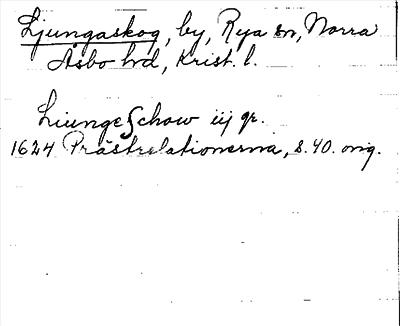 Ljungaskog, by, Rya sn, Norra
Åsbo hd, Krist. l.
Liungeschow iij gr.
1624 Prästrelationerna, s. 40. orig.